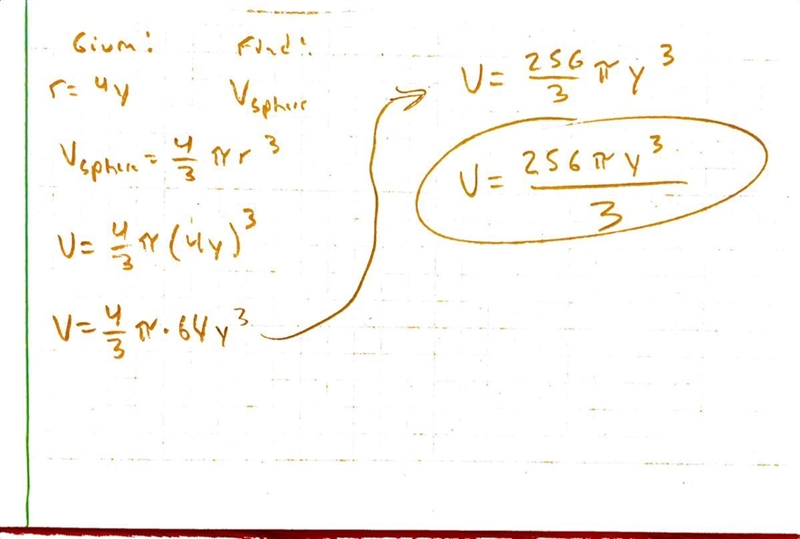 Given: Find:
r= 4y V sphere
V sphere = 4/3 π r³
V= 4/3 π (4y)³
V= 4/3 π · 64y³
V= 256/3 π y³
V= 256πy³/3